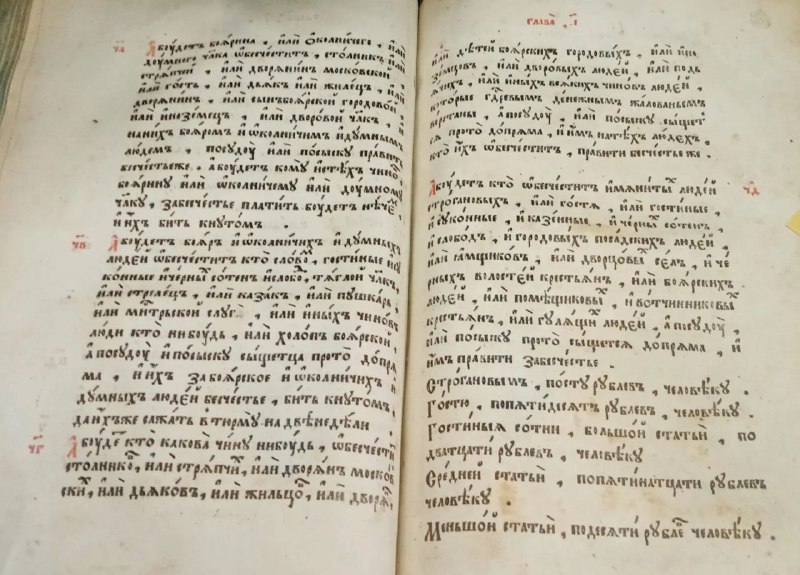 ча҃ А҆боудетъ боѧрина, и҆лѝ ѻ҆колничего, и҆лѝ
доумного чл҃ка ѡ҆бесчеститъ, столникъ, и҆лѝ
стрѧпчеи, и҆лѝ дворѧнинъ московской,
и҆лѝ гость, и҆лѝ дьѧкъ и҆лѝ жилецъ, и҆лѝ
дворѧнинъ, и҆лѝ сынъ боѧрской городовой,
и҆лѝ и҆ноземецъ, и҆лѝ дворовой чл҃къ, и҆
на нихъ боѧромъ и҆ ѡ҆колничимъ и҆ думнымъ
людемъ, посудоу̀ и҆лѝ посыску правити
бесчестье же. а҆боудетъ кому и҆стѣхъ чиновъ
боѧрину и҆лѝ ѡ҆колничему и҆лѝ доумному
чл҃ку, забесчестье платить боудетъ нѣчемъ
и҆ и҆хъ бить кнутомъ.
чв҃ А҆боудетъ боѧръ и҆ ѡ҆колничихъ и҆ думныхъ
людей ѡ҆бесчеститъ кто словомъ, гостиные и҆ су
конные и҆ черныхъ сотенъ и҆ слободъ, тѧглой чл҃къ,
и҆лѝ стрелецъ, и҆лѝ казакъ, и҆лѝ пушкарь,
и҆лѝ мн҃тырьской слуга, и҆лѝ и҆ныхъ чиновъ
люди кто нибоудь, и҆лѝ холопъ боѧрской,
а҆ посудоу̀ и҆ посыску сыщетца прото допрѧ
ма, и҆ и҆хъ за боѧрское и҆ ѡ҆колничихъ и҆
думныхъ людей бесчестье, бить кнутомъ,
да и҆хъ же сажать в тюрму на двѣ недѣли
чг҃ А҆боудетъ кто какова чину нибоудь, ѡ҆бесчеститъ
столниковъ, и҆лѝ стрѧпчихъ, и҆лѝ дворѧнъ москов
скихъ, и҆лѝ дьѧковъ, и҆лѝ жильцовъ, и҆лѝ дворѧнъ,
глава̀, і҃
и҆лѝ дѣтей боѧрскихъ городовыхъ, и҆лѝ и҆но
земцовъ, и҆лѝ дворовыхъ людей, и҆лѝ подь
ѧчихъ, и҆лѝ и҆ныхъ всѧкихъ чиновъ людей,
которые гдⷭ҇ревымъ денежнымъ жалованьемъ
верстаны, а҆ посудоу̀, и҆лѝ посыску сыщетсѧ
прото допрѧма, и҆ и҆мъ на тѣхъ людехъ,
кто и҆хъ ѡ҆бесчеститъ, правити бесчестье же.
чд҃ А҆боудетъ кто ѡ҆бесчеститъ и҆мѧнитыхъ людей
строгановыхъ, и҆лѝ гостѧ, и҆лѝ гостиные,
и҆ суконные, и҆ казенные, и҆ черныхъ сотенъ,
и҆ слободъ, и҆ городовыхъ посадскихъ людей,
и҆лѝ ꙗ҆мщиковъ, и҆лѝ дворцовыхъ селъ, и҆ че
рныхъ волостей крестьѧнъ, и҆лѝ боѧрскихъ
людей, и҆лѝ помѣщиковыхъ и҆ вотчинниковыхъ
крестьѧнъ, и҆лѝ гулѧщихъ людей, а҆ посудоу̀,
и҆лѝ посыску прото сыщетсѧ допрѧма, и҆
и҆мъ правити за бесчестье.
Строгановымъ, по сту рублевъ, человѣку.
Гостю, по пѧтидесѧтъ рублевъ, человѣку.
Гостиныѧ сотни, большой статьи, по
дватцати рублевъ, человѣку
Средней статьи, по пѧтинатцати рублевъ
человѣку.
Меньшой статьи, по десѧти рублевъ человѣку.